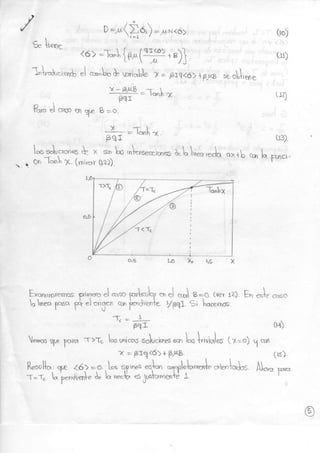 D = μ⟨Σσᵢ⟩ = μN<σ> (10)
Se tiene
<σ> = Tanh {βμ( qI<σ>/μ + B)} (11)
Introduciendo el cambio de variable x = βIq<σ> + βμB se obtiene
x - βμB / βqI = Tanh x (12)
Para el caso en que B = 0
x / βqI = Tanh x (13)
las soluciones de x son las intersecciones de la línea recta ax+b con la función Tanh x. (mirar
1,0
T>Tc ① T=Tc Tanh x
② ③
0,5
T<Tc
0 0,5 1,0 X₀ 1,5 X
Examinaremos primero el caso particular en el cual B=0 (ver 12). En este caso
la línea pasa por el origen con pendiente 1/βqI. Si hacemos
Tc = 1 / βqI (14)
Vemos que para T>Tc las únicas soluciones son las triviales (x=0) y con
x = βIq<σ> + βμB (15)
Resulta que <σ>=0. Los spines están completamente orientados. Ahora para
T=Tc la pendiente de la recta es justamente 1.
5